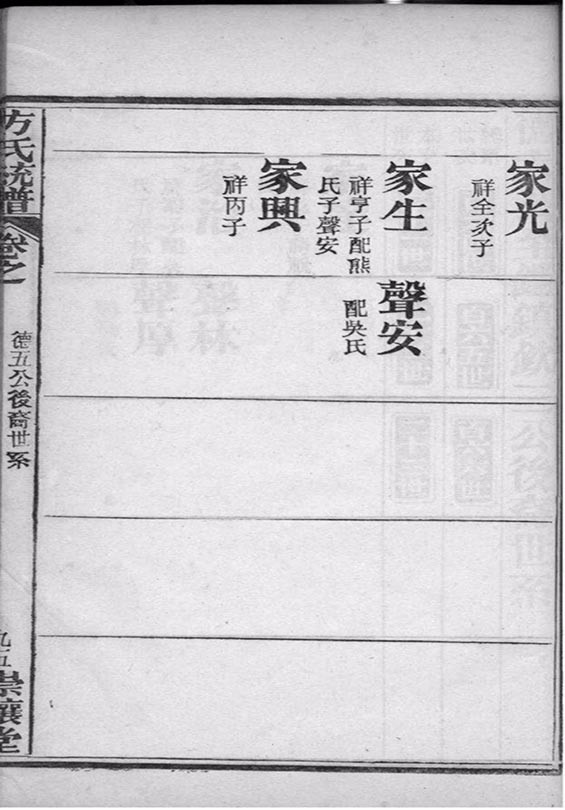 家光
祥全次子
家生
祥亨子配熊
氏子聲安
聲安
配吳氏
家興
祥丙子
方氏統譜
卷之一
德五公後裔世系
九五
崇讓堂